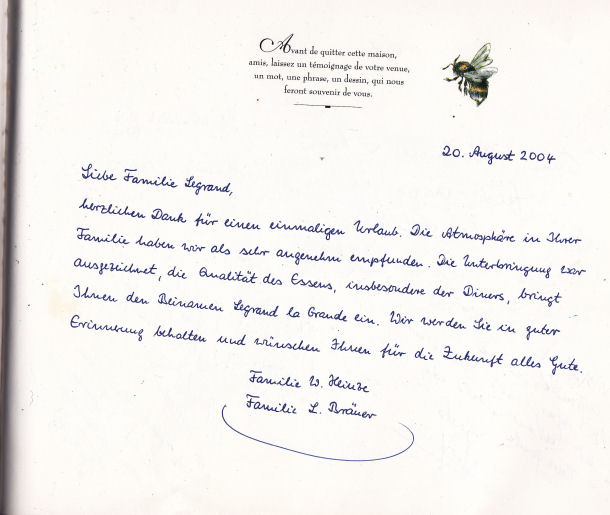 Avant de quitter cette maison,
amis, laissez un témoignage de votre venue,
un mot, une phrase, un dessin, qui nous
feront souvenir de vous.
20. August 2004
Liebe Familie Legrand,
herzlichen Dank für einen einmaligen Urlaub. Die Atmosphäre in Ihrer
Familie haben wir als sehr angenehm empfunden. Die Unterbringung war
ausgezeichnet, die Qualität des Essens, insbesondere der Diners, bringt
Ihnen den Beinamen Legrand la Grande ein. Wir werden Sie in guter
Erinnerung behalten und wünschen Ihnen für die Zukunft alles Gute.
Familie W. Heinze
Familie L. Bräuer